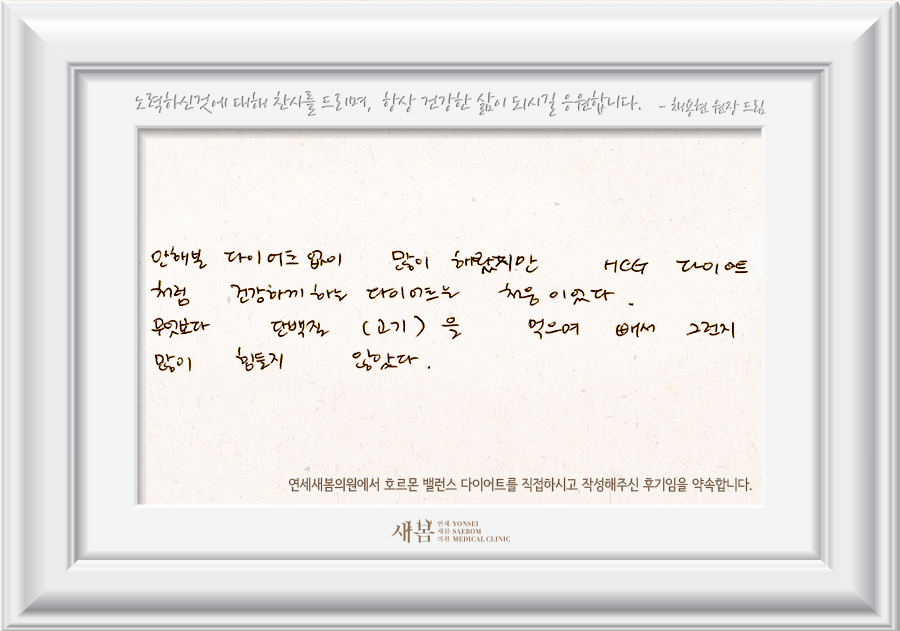 노력하신것에 대해 찬사를 드리며, 항상 건강한 삶이 되시길 응원합니다. - 채용현 원장 드림
안해본 다이어트 없이 많이 해봤지만 HCG 다이어트
처럼 건강하게 하는 다이어트는 처음 이었다.
무엇보다 단백질 (고기) 을 먹으며 빼서 그런지
많이 힘들지 않았다.
연세새봄의원에서 호르몬 밸런스 다이어트를 직접하시고 작성해주신 후기임을 약속합니다.
새봄 연세 새봄 의원 YONSEI SAEBOM MEDICAL CLINIC